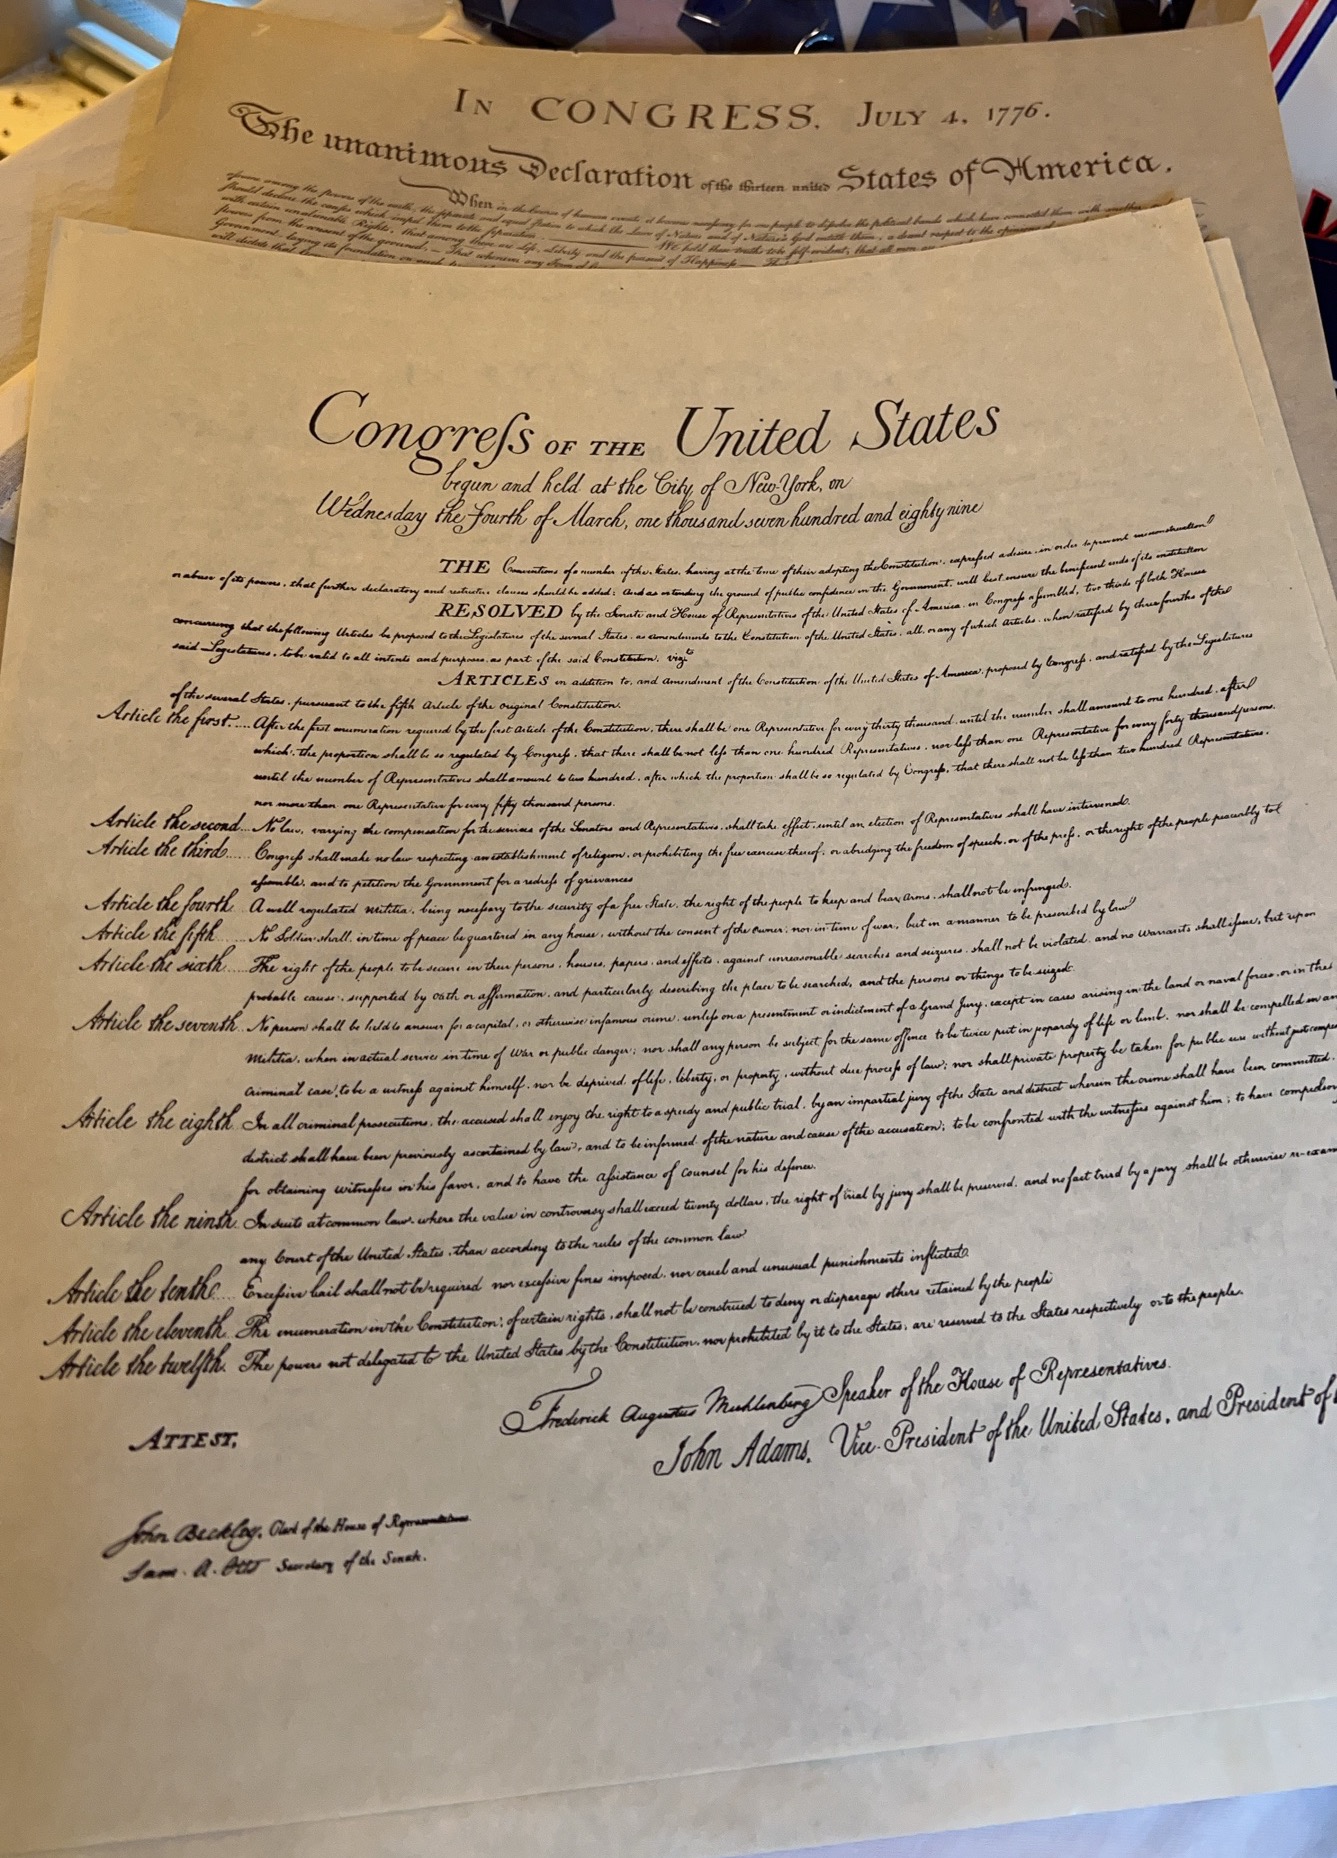 IN CONGRESS. JULY 4, 1776.
The unanimous Declaration of the thirteen united States of America.
When in the course of human events, it becomes necessary for one people to dissolve the political bands which have connected them with another,
Congreſs OF THE United States
begun and held at the City of New-York, on
Wednesday the Fourth of March, one thousand seven hundred and eighty nine
THE Conventions of a number of the States, having at the time of their adopting the Constitution, expreſsed a desire, in order to prevent misconstruction
or abuse of its powers, that further declaratory and restrictive clauses should be added: And as extending the ground of public confidence in the Government, will best ensure the beneficent ends of its institution
RESOLVED by the Senate and House of Representatives of the United States of America, in Congreſs aſsembled, two thirds of both Houses
concurring that the following Articles be proposed to the Legislatures of the several States, as amendments to the Constitution of the United States, all, or any of which Articles, when ratified by three fourths of the
said Legislatures, to be valid to all intents and purposes, as part of the said Constitution, vizt
ARTICLES in addition to, and amendment of the Constitution of the United States of America, proposed by Congreſs, and ratified by the Legislatures
of the several States, pursuant to the fifth Article of the original Constitution.
Article the first.... After the first enumeration required by the first Article of the Constitution, there shall be one Representative for every thirty thousand, until the number shall amount to one hundred, after
which, the proportion shall be so regulated by Congreſs, that there shall be not leſs than one hundred Representatives, nor leſs than one Representative for every forty thousand persons,
until the number of Representatives shall amount to two hundred, after which the proportion shall be so regulated by Congreſs, that there shall not be leſs than two hundred Representatives,
nor more than one Representative for every fifty thousand persons.
Article the second... No law, varying the compensation for the services of the Senators and Representatives, shall take effect, until an election of Representatives shall have intervened.
Article the third..... Congreſs shall make no law respecting an establishment of religion, or prohibiting the free exercise thereof, or abridging the freedom of speech, or of the preſs, or the right of the people peaceably to
aſsemble, and to petition the Government for a redreſs of grievances
Article the fourth. A well regulated Militia, being neceſsary to the security of a free State, the right of the people to keep and bear Arms, shall not be infringed.
Article the fifth...... No Soldier shall, in time of peace be quartered in any house, without the consent of the owner, nor in time of war, but in a manner to be prescribed by law
Article the sixth.... The right of the people to be secure in their persons, houses, papers, and effects, against unreasonable searches and seizures, shall not be violated, and no Warrants shall iſsue, but upon
probable cause, supported by oath or affirmation, and particularly describing the place to be searched, and the persons or things to be seized.
Article the seventh. No person shall be held to answer for a capital, or otherwise infamous crime, unleſs on a presentment or indictment of a Grand Jury, except in cases arising in the land or naval forces, or in the
Militia, when in actual service in time of War or public danger; nor shall any person be subject for the same offence to be twice put in jeopardy of life or limb, nor shall be compelled in any
criminal case, to be a witneſs against himself, nor be deprived, of life, liberty, or property, without due proceſs of law; nor shall private property be taken for public use without just
Article the eighth. In all criminal prosecutions, the accused shall enjoy the right to a speedy and public trial, by an impartial jury of the State and district wherein the crime shall have been committed,
district shall have been previously ascertained by law, and to be informed of the nature and cause of the accusation; to be confronted with the witneſses against him; to have
for obtaining witneſses in his favor, and to have the aſsistance of counsel for his defence.
Article the ninth. In suits at common law, where the value in controversy shall exceed twenty dollars, the right of trial by jury shall be preserved, and no fact tried by a jury shall be otherwise
any Court of the United States, than according to the rules of the common law
Article the tenth... Exceſsive bail shall not be required nor exceſsive fines imposed, nor cruel and unusual punishments inflicted.
Article the eleventh. The enumeration in the Constitution, of certain rights, shall not be construed to deny or disparage others retained by the people
Article the twelfth. The powers not delegated to the United States by the Constitution, nor prohibited by it to the States, are reserved to the States respectively or to the people.
Frederick Augustus Muhlenberg Speaker of the House of Representatives.
John Adams, Vice-President of the United States, and President of
ATTEST,
John Beckley, Clerk of the House of Representatives
Sam. A. Otis Secretary of the Senate.